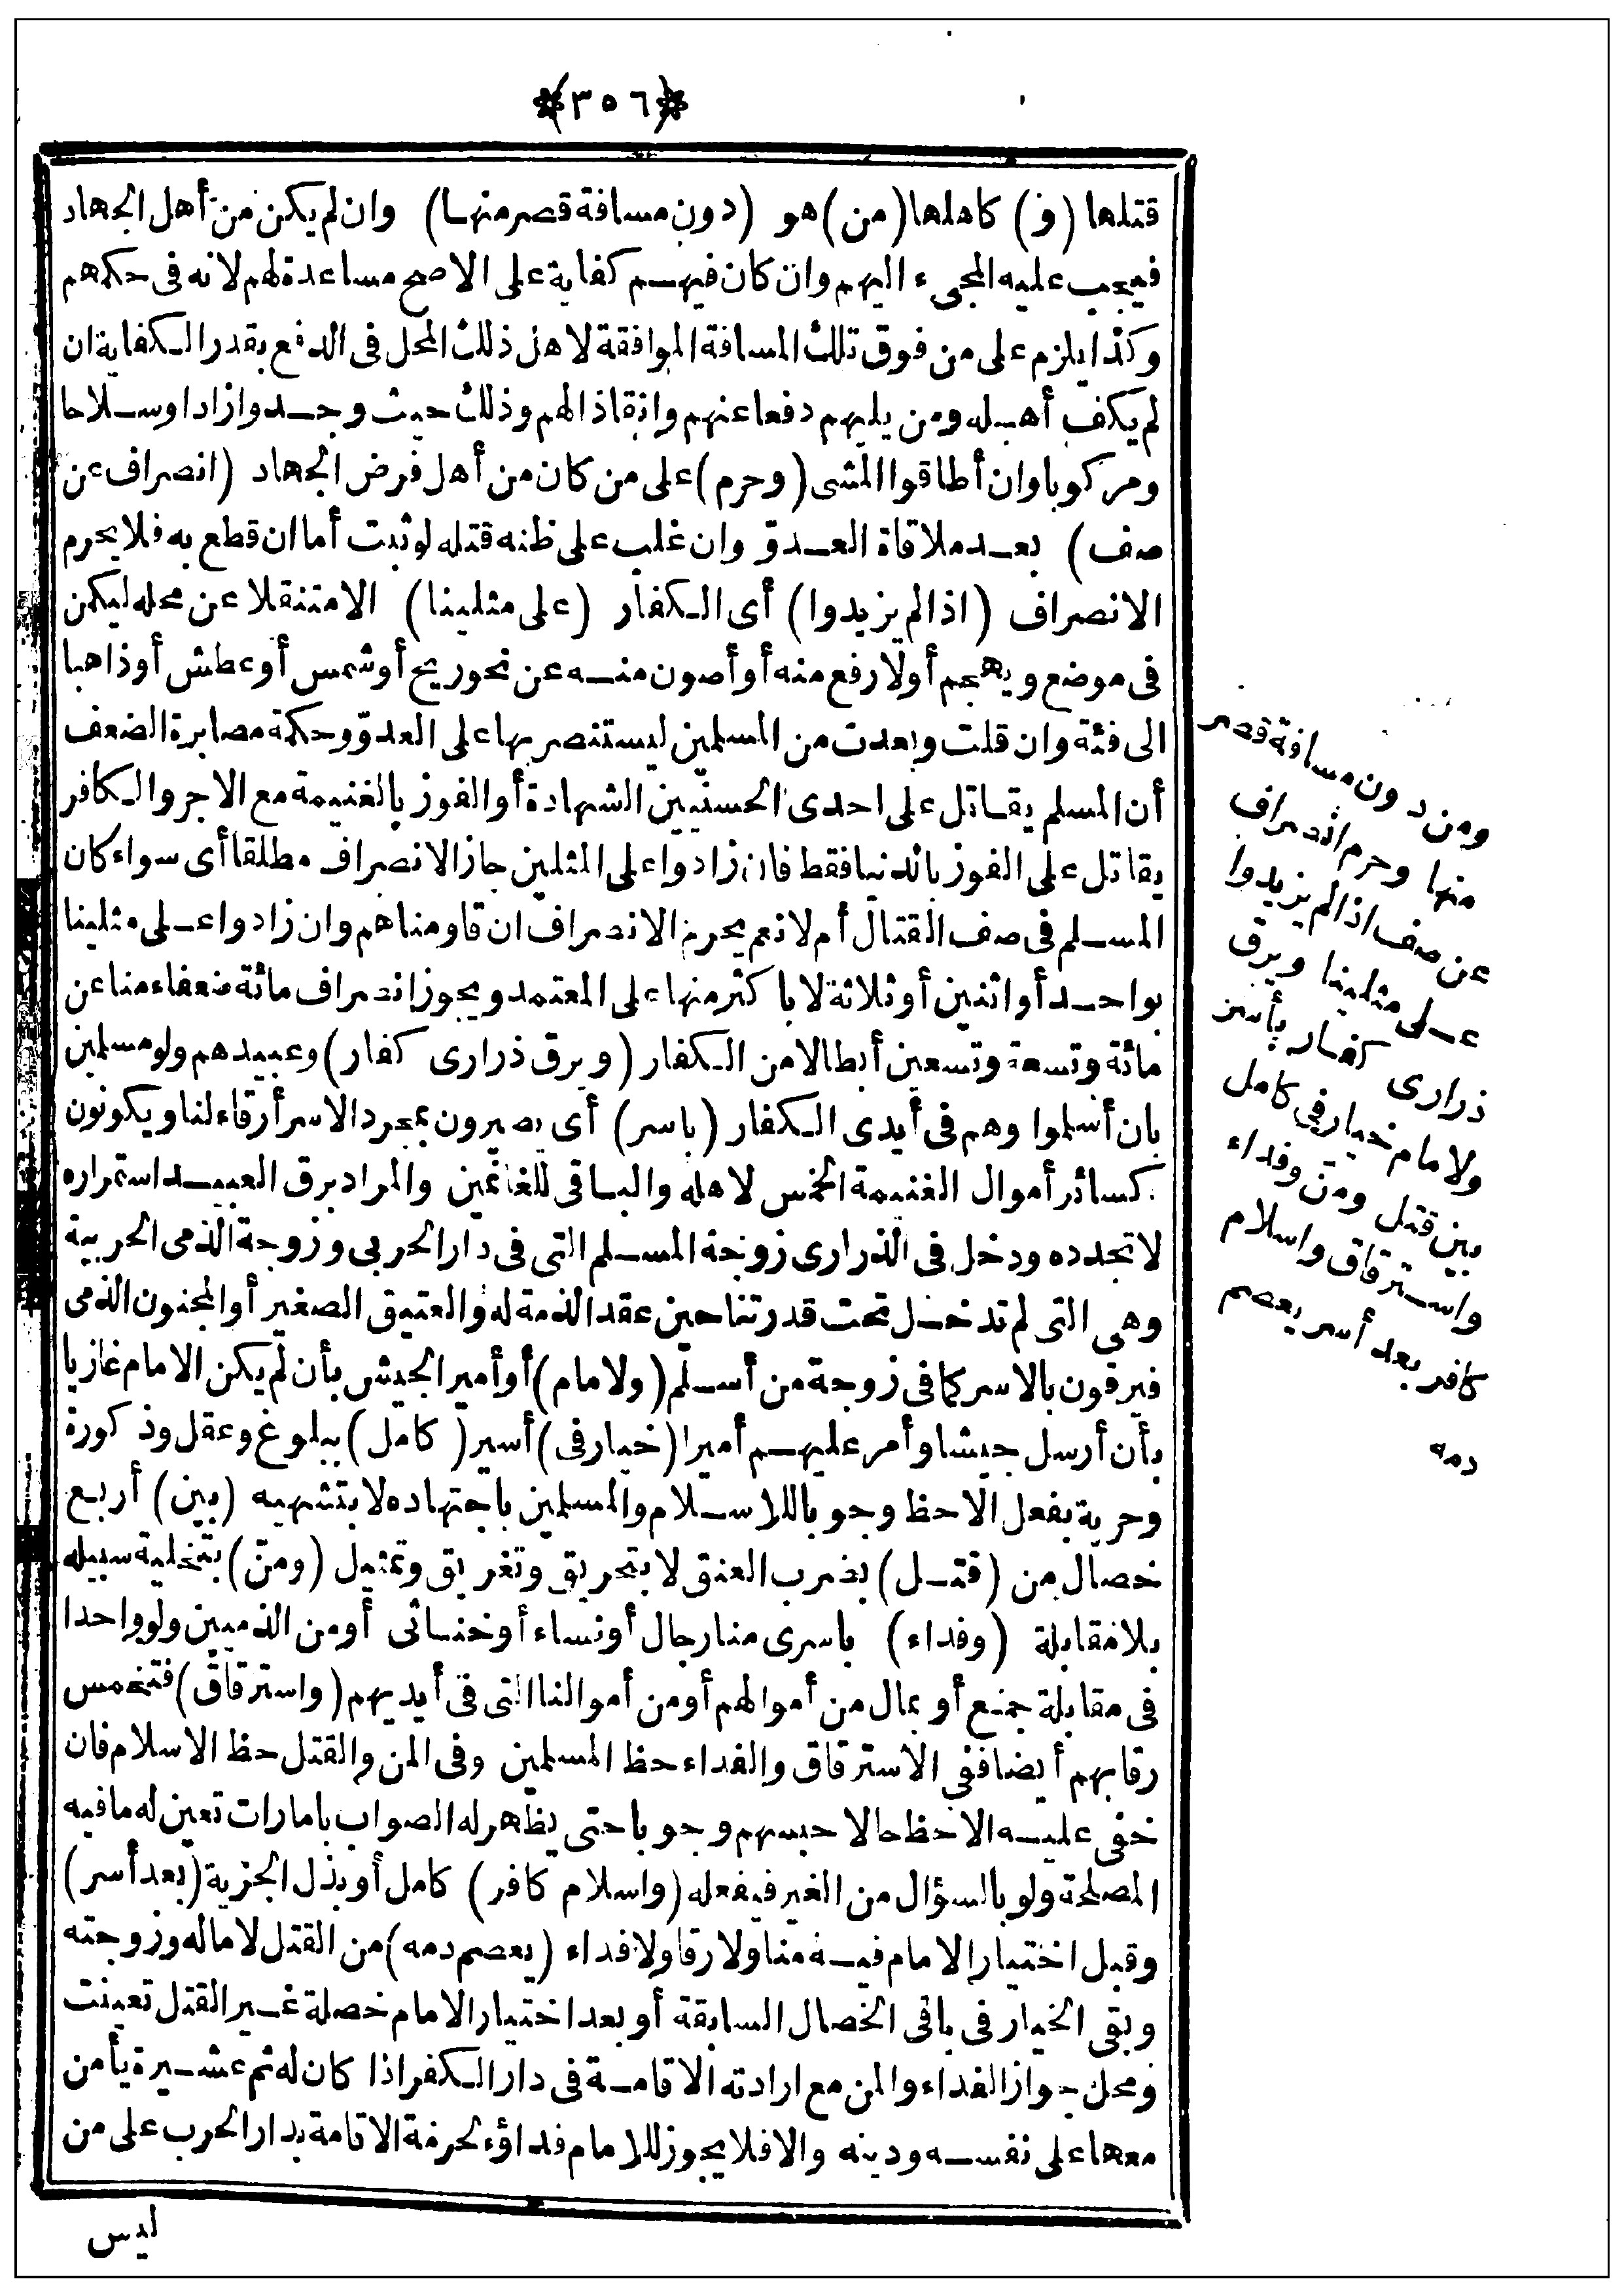 ﴿٣٥٦﴾
قتلها (و) كاهلها (من) هو (دون مسافة قصر منها) وان لم يكن من أهل الجهاد
فيجب عليه المجىء اليهم وان كان فيهم كفاية على الاصح مساعدة لهم لانه فى حكمهم
وكذا يلزم على من فوق تلك المسافة الموافقة لاهل ذلك المحل فى الدفع بقدر الكفاية ان
لم يكف أهله ومن يليهم دفعا عنهم وانقاذا لهم وذلك حيث وجدوا زادا وسلاحا
ومركوبا وان أطاقوا المشى (وحرم) على من كان من أهل فرض الجهاد (انصراف عن
صف) بعد ملاقاة العدوّ وان غلب على ظنه قتله لو ثبت أما ان قطع به فلا يحرم
الانصراف (اذا لم يزيدوا) أى الكفار (على مثلينا) الا متنقلا عن محله ليكن
فى موضع ويهجم أو لارفع منه أو أصون منه عن نحو ريح أو شمس أو عطش أو ذاهبا
الى فئة وان قلت وبعدت من المسلمين ليستنصر بها على العدوّ وحكمة مصابرة الضعف
أن المسلم يقاتل على احدى الحسنيين الشهادة أو الفوز بالغنيمة مع الاجر والكافر
يقاتل على الفوز بالدنيا فقط فان زادوا على المثلين جاز الانصراف مطلقا أى سواء كان
المسلم فى صف القتال أم لا نعم يحرم الانصراف ان قاومناهم وان زادوا على مثلينا
بواحد أو اثنين أو ثلاثة لا باكثر منها على المعتمد ويجوز انصراف مائة ضعفاء منا عن
مائة وتسعة وتسعين أبطالا من الكفار (ويرق ذرارى كفار) وعبيدهم ولو مسلمين
بان أسلموا وهم فى أيدى الكفار (باسر) أى يصيرون بمجرد الاسر أرقاء لنا ويكونون
كسائر أموال الغنيمة الخمس لاهله والباقى للغانمين والمراد برق العبيد استمراره
لا تجدده ودخل فى الذرارى زوجة المسلم التى فى دار الحربى وزوجة الذمى الحربية
وهى التى لم تدخل تحت قدرتنا حين عقد الذمة له والعتيق الصغير أو المجنون الذمى
فيرقون بالاسر كما فى زوجة من أسلم (ولامام) أو أمير الجيش بأن لم يكن الامام غازيا
بأن أرسل جيشا وأمر عليهم أميرا (خيار فى) أسير (كامل) ببلوغ وعقل وذكورة
وحرية بفعل الاحظ وجوبا للاسلام والمسلمين باجتهاده لا بتشهيه (بين) أربع
خصال من (قتل) بضرب العنق لا بتحريق وتغريق وتمثيل (ومنّ) بتخلية سبيله
بلا مقابلة (وفداء) باسرى منا رجال أو نساء أو خنائى أو من الذميين ولو واحدا
فى مقابلة جمع أو بمال من أموالهم أو من أموالنا التى فى أيديهم (واسترقاق) فتخمس
رقابهم أيضا ففى الاسترقاق والفداء حظ المسلمين وفى المن والقتل حظ الاسلام فان
خفى عليه الاحظ حالا حبسهم وجوبا حتى يظهر له الصواب بامارات تعين له ما فيه
المصلحة ولو بالسؤال من الغير فيفعله (واسلام كافر) كامل أو بذل الجزية (بعد أسر)
وقبل اختيار الامام فيه منا ولا رقا ولا فداء (يعصم دمه) من القتل لا ماله وزوجته
وبقى الخيار فى باقى الخصال السابقة أو بعد اختيار الامام خصلة غير القتل تعينت
ومحل جواز الفداء والمن مع ارادته الاقامة فى دار الكفر اذا كان له ثم عشيرة يأمن
معها على نفسه ودينه والا فلا يجوز للامام فداؤه لحرمة الاقامة بدار الحرب على من
ليس
ومن دون مسافة قصر
منها وحرم انصراف
عن صف اذا لم يزيدوا
على مثلينا ويرق
ذرارى كفار بأسر
ولامام خيار فى كامل
بين قتل ومن وفداء
واسترقاق واسلام
كافر بعد أسر يعصم
دمه